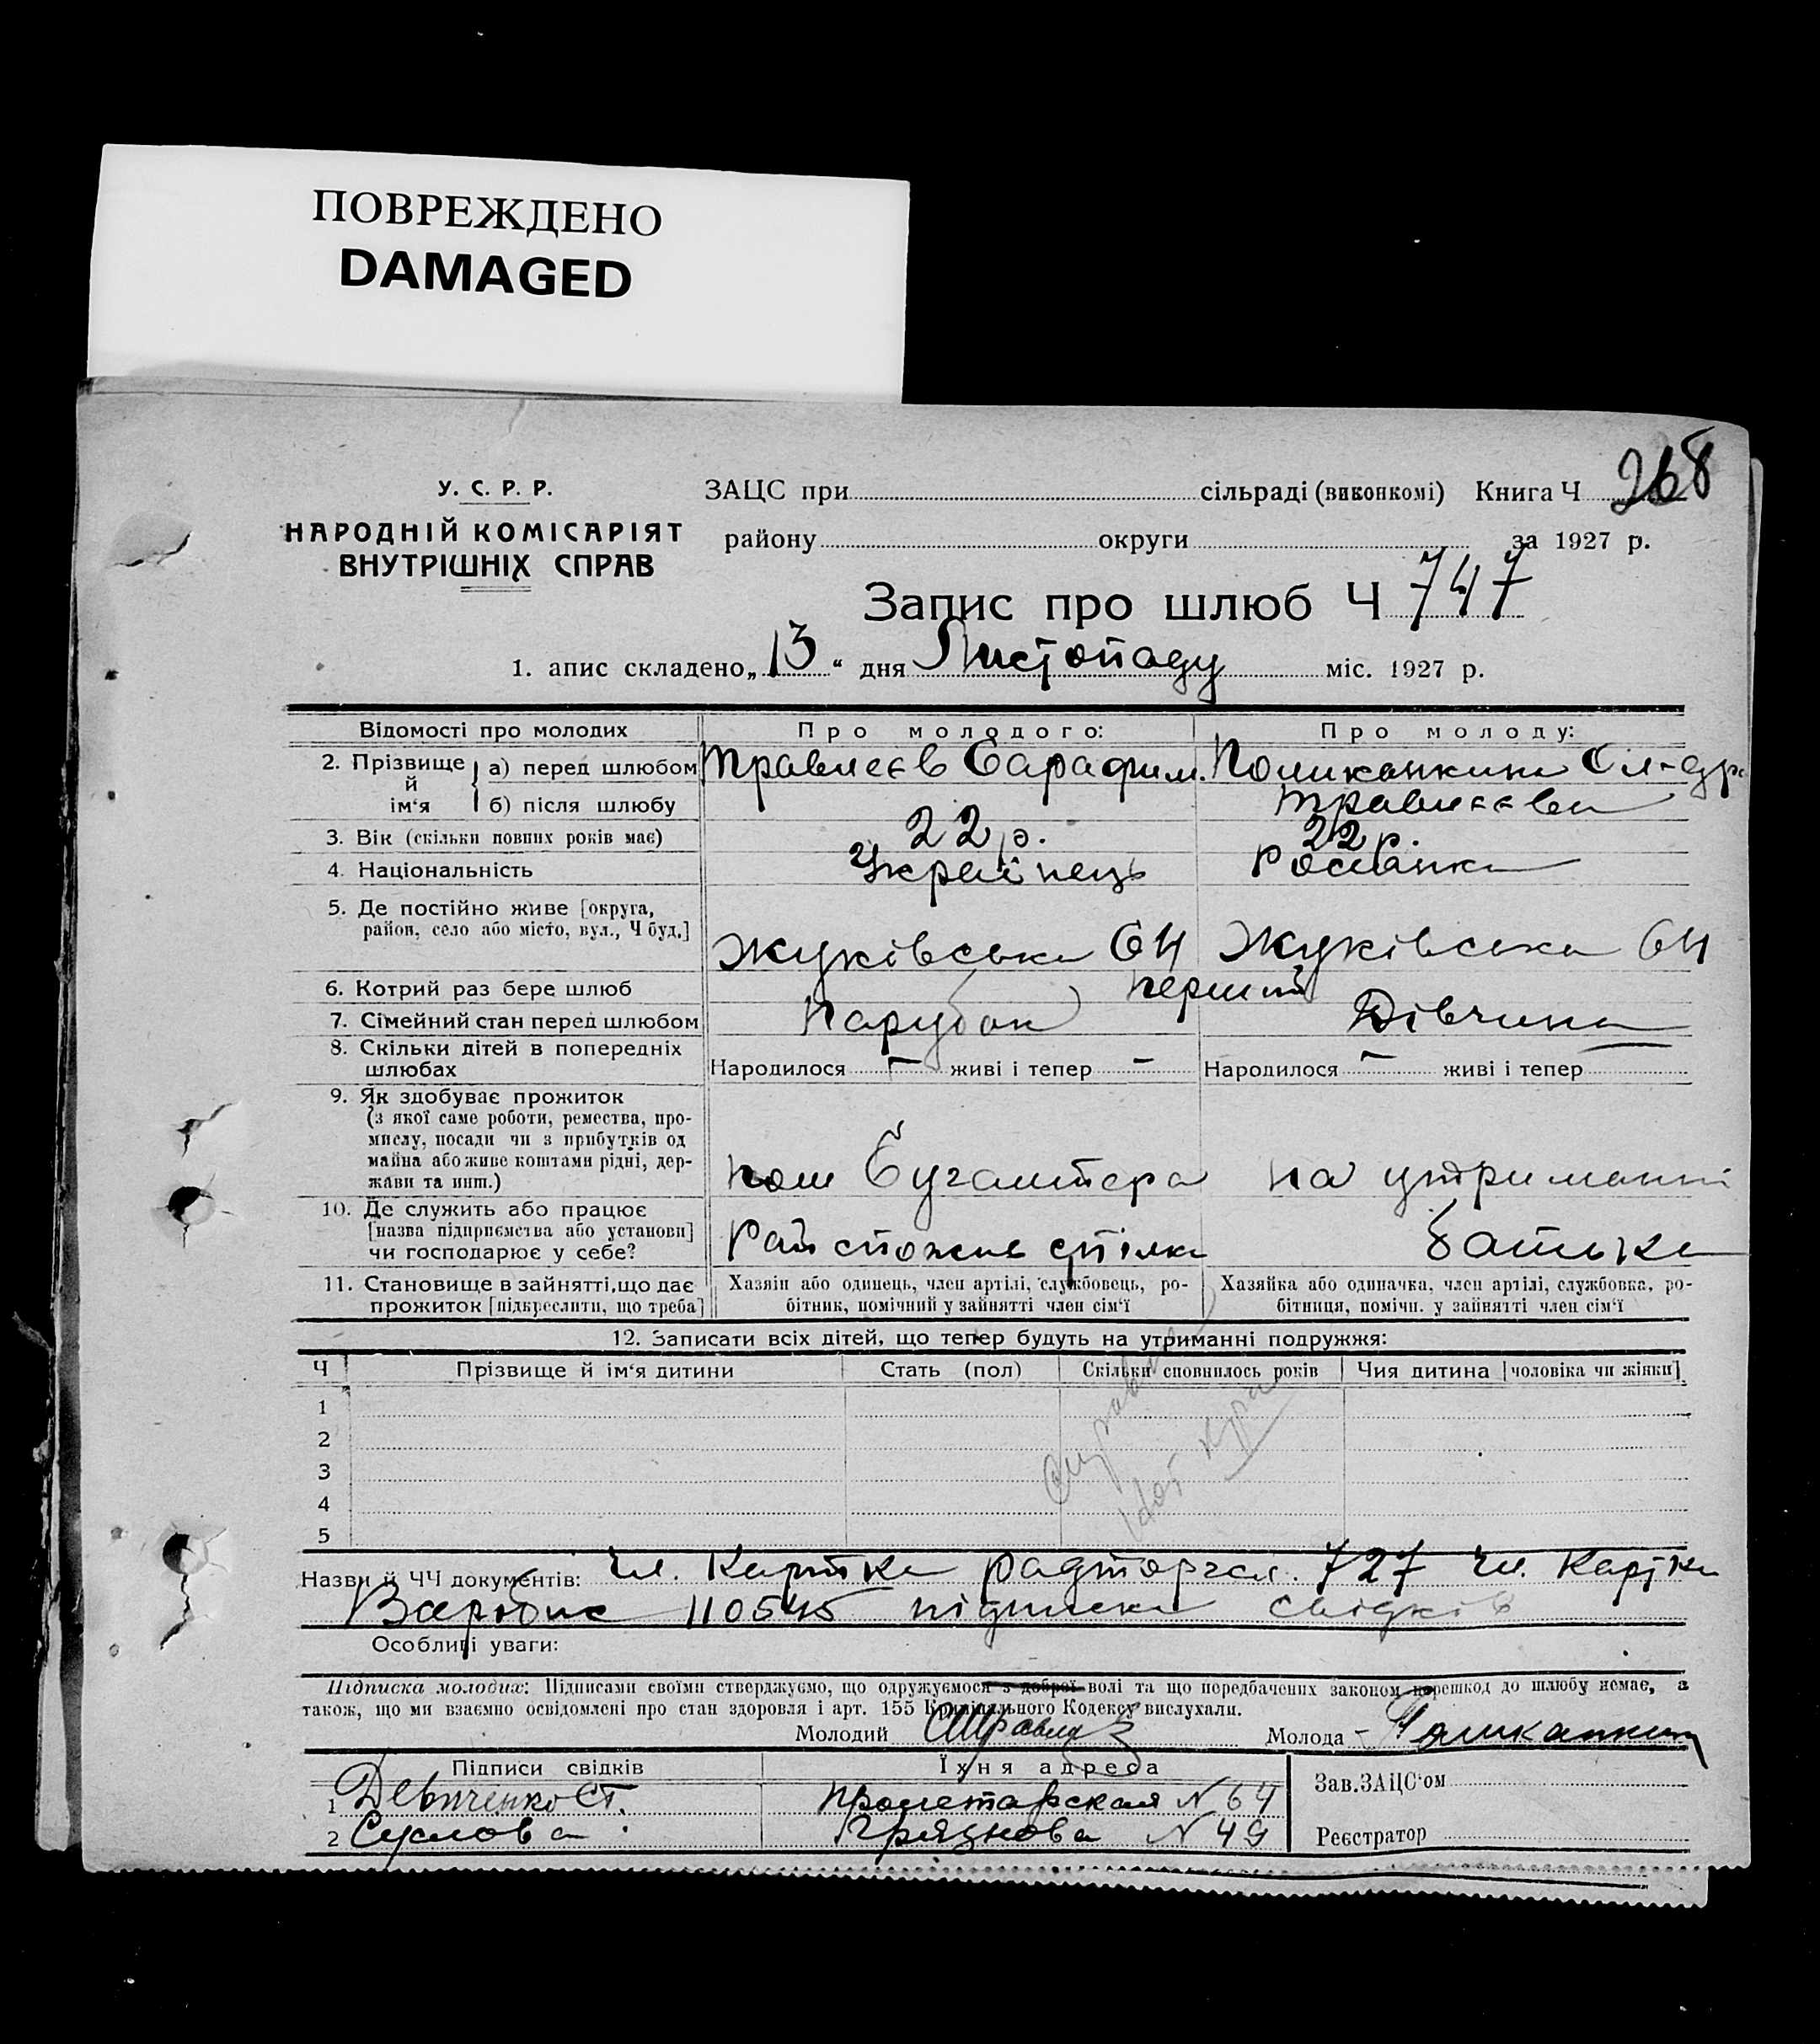 ПОВРЕЖДЕНО
DAMAGED
268
У. С. Р. Р.
НАРОДНІЙ КОМІСАРІЯТ
ВНУТРІШНІХ СПРАВ
ЗАЦС при сільраді (виконкомі) Книга Ч
району округи за 1927 р.
Запис про шлюб Ч 747
1. апис складено „13“ дня Листопаду міс. 1927 р.
Відомості про молодих Про молодого: Про молоду:
2. Прізвище й ім‘я а) перед шлюбом Травлєєв Сарафим.
б) після шлюбу Травлєєва
3. Вік (скільки повних років має) 22 р. 22 р.
4. Національність Українець Росіянка
5. Де постійно живе [округа, Жуківська 64 Жуківська 64
район, село або місто, вул., Ч буд.]
6. Котрий раз бере шлюб перший
7. Сімейний стан перед шлюбом Парубок Дівчина
8. Скільки дітей в попередніх Народилося — живі і тепер — Народилося — живі і тепер
шлюбах
9. Як здобуває прожиток
(з якої саме роботи, ремества, про-
мислу, посади чи з прибутків од
майна або живе коштами рідні, дер-
жави та инш.) пом Бугалтера на утриманні
10. Де служить або працює
[назва підприємства або установи]
чи господарює у себе? Рай спожив спілка батька
11. Становище в зайнятті, що дає Хазяїн або одинець, член артілі, службовець, ро- Хазяйка або одиначка, член артілі, службовка, ро-
прожиток [підкреслити, що треба] бітник, помічний у зайнятті член сім‘ї бітниця, помічн. у зайнятті член сім‘ї
12. Записати всіх дітей, що тепер будуть на утриманні подружжя:
Ч Прізвище й ім‘я дитини Стать (пол) Скільки сповнилось років Чия дитина [чоловіка чи жінки]
1
2
3
4
5
Назви й ЧЧ документів: чл. Картка 727 чл. Картка
110545 підписка свідків
Особливі уваги:
Підписка молодих: Підписами своїми стверджуємо, що одружуємося з доброї волі та що передбачених законом перешкод до шлюбу немає, а
також, що ми взаємно освідомлені про стан здоровля і арт. 155 Кримінального Кодексу вислухали.
Молодий Молода
Підписи свідків Їхня адреса Зав.ЗАЦС‘ом
1 Девиченко Ст. Пролетарская N 64
2 Суслова Грязнова N 49 Реєстратор